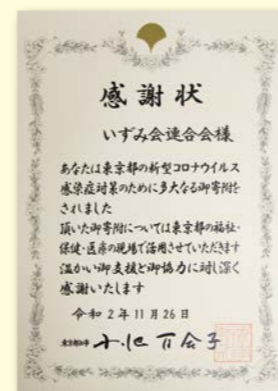 感謝状
いずみ会連合会様
あなたは東京都の新型コロナウイルス
感染症対策のために多大なる御寄附を
されました
頂いた御寄附については東京都の福祉・
保健・医療の現場で活用させていただきます
温かい御支援と御協力に対し深く
感謝いたします
令和2年11月26日
東京都知事 小池百合子